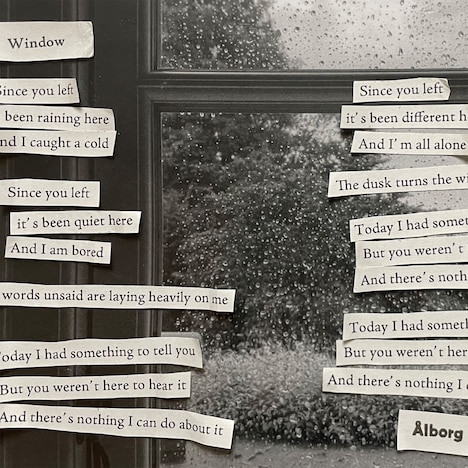 Window
Since you left
been raining here
And I caught a cold
Since you left
it's been quiet here
And I am bored
words unsaid are laying heavily on me
Today I had something to tell you
But you weren't here to hear it
And there's nothing I can do about it
Since you left
it's been different
And I'm all alone
The dusk turns the
Today I had
But you weren't
And there's
Today I had
But you weren't
And there's nothing I
Ålborg